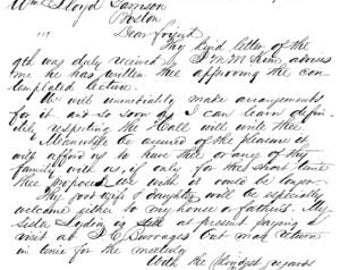 Wm Lloyd Garrison
Boston
Dear friend
Thy kind letter of the
9th was duly received by J M McKim advises
me he has written thee approving the con-
templated lecture.
We will immediately make arrangements
for it. and so soon as I can learn defini-
tely respecting the Hall will write thee.
Meanwhile be assured of the pleasure it
will afford us to have thee or any of thy
family with us, if only for the short time
thee proposed we wish it could be longer
Thy good wife & daughter will be especially
welcome either to my house or fathers. My
Sister Lydia is still at present paying a
visit at Burroass but may return
in time for the meeting
With the kindest regards